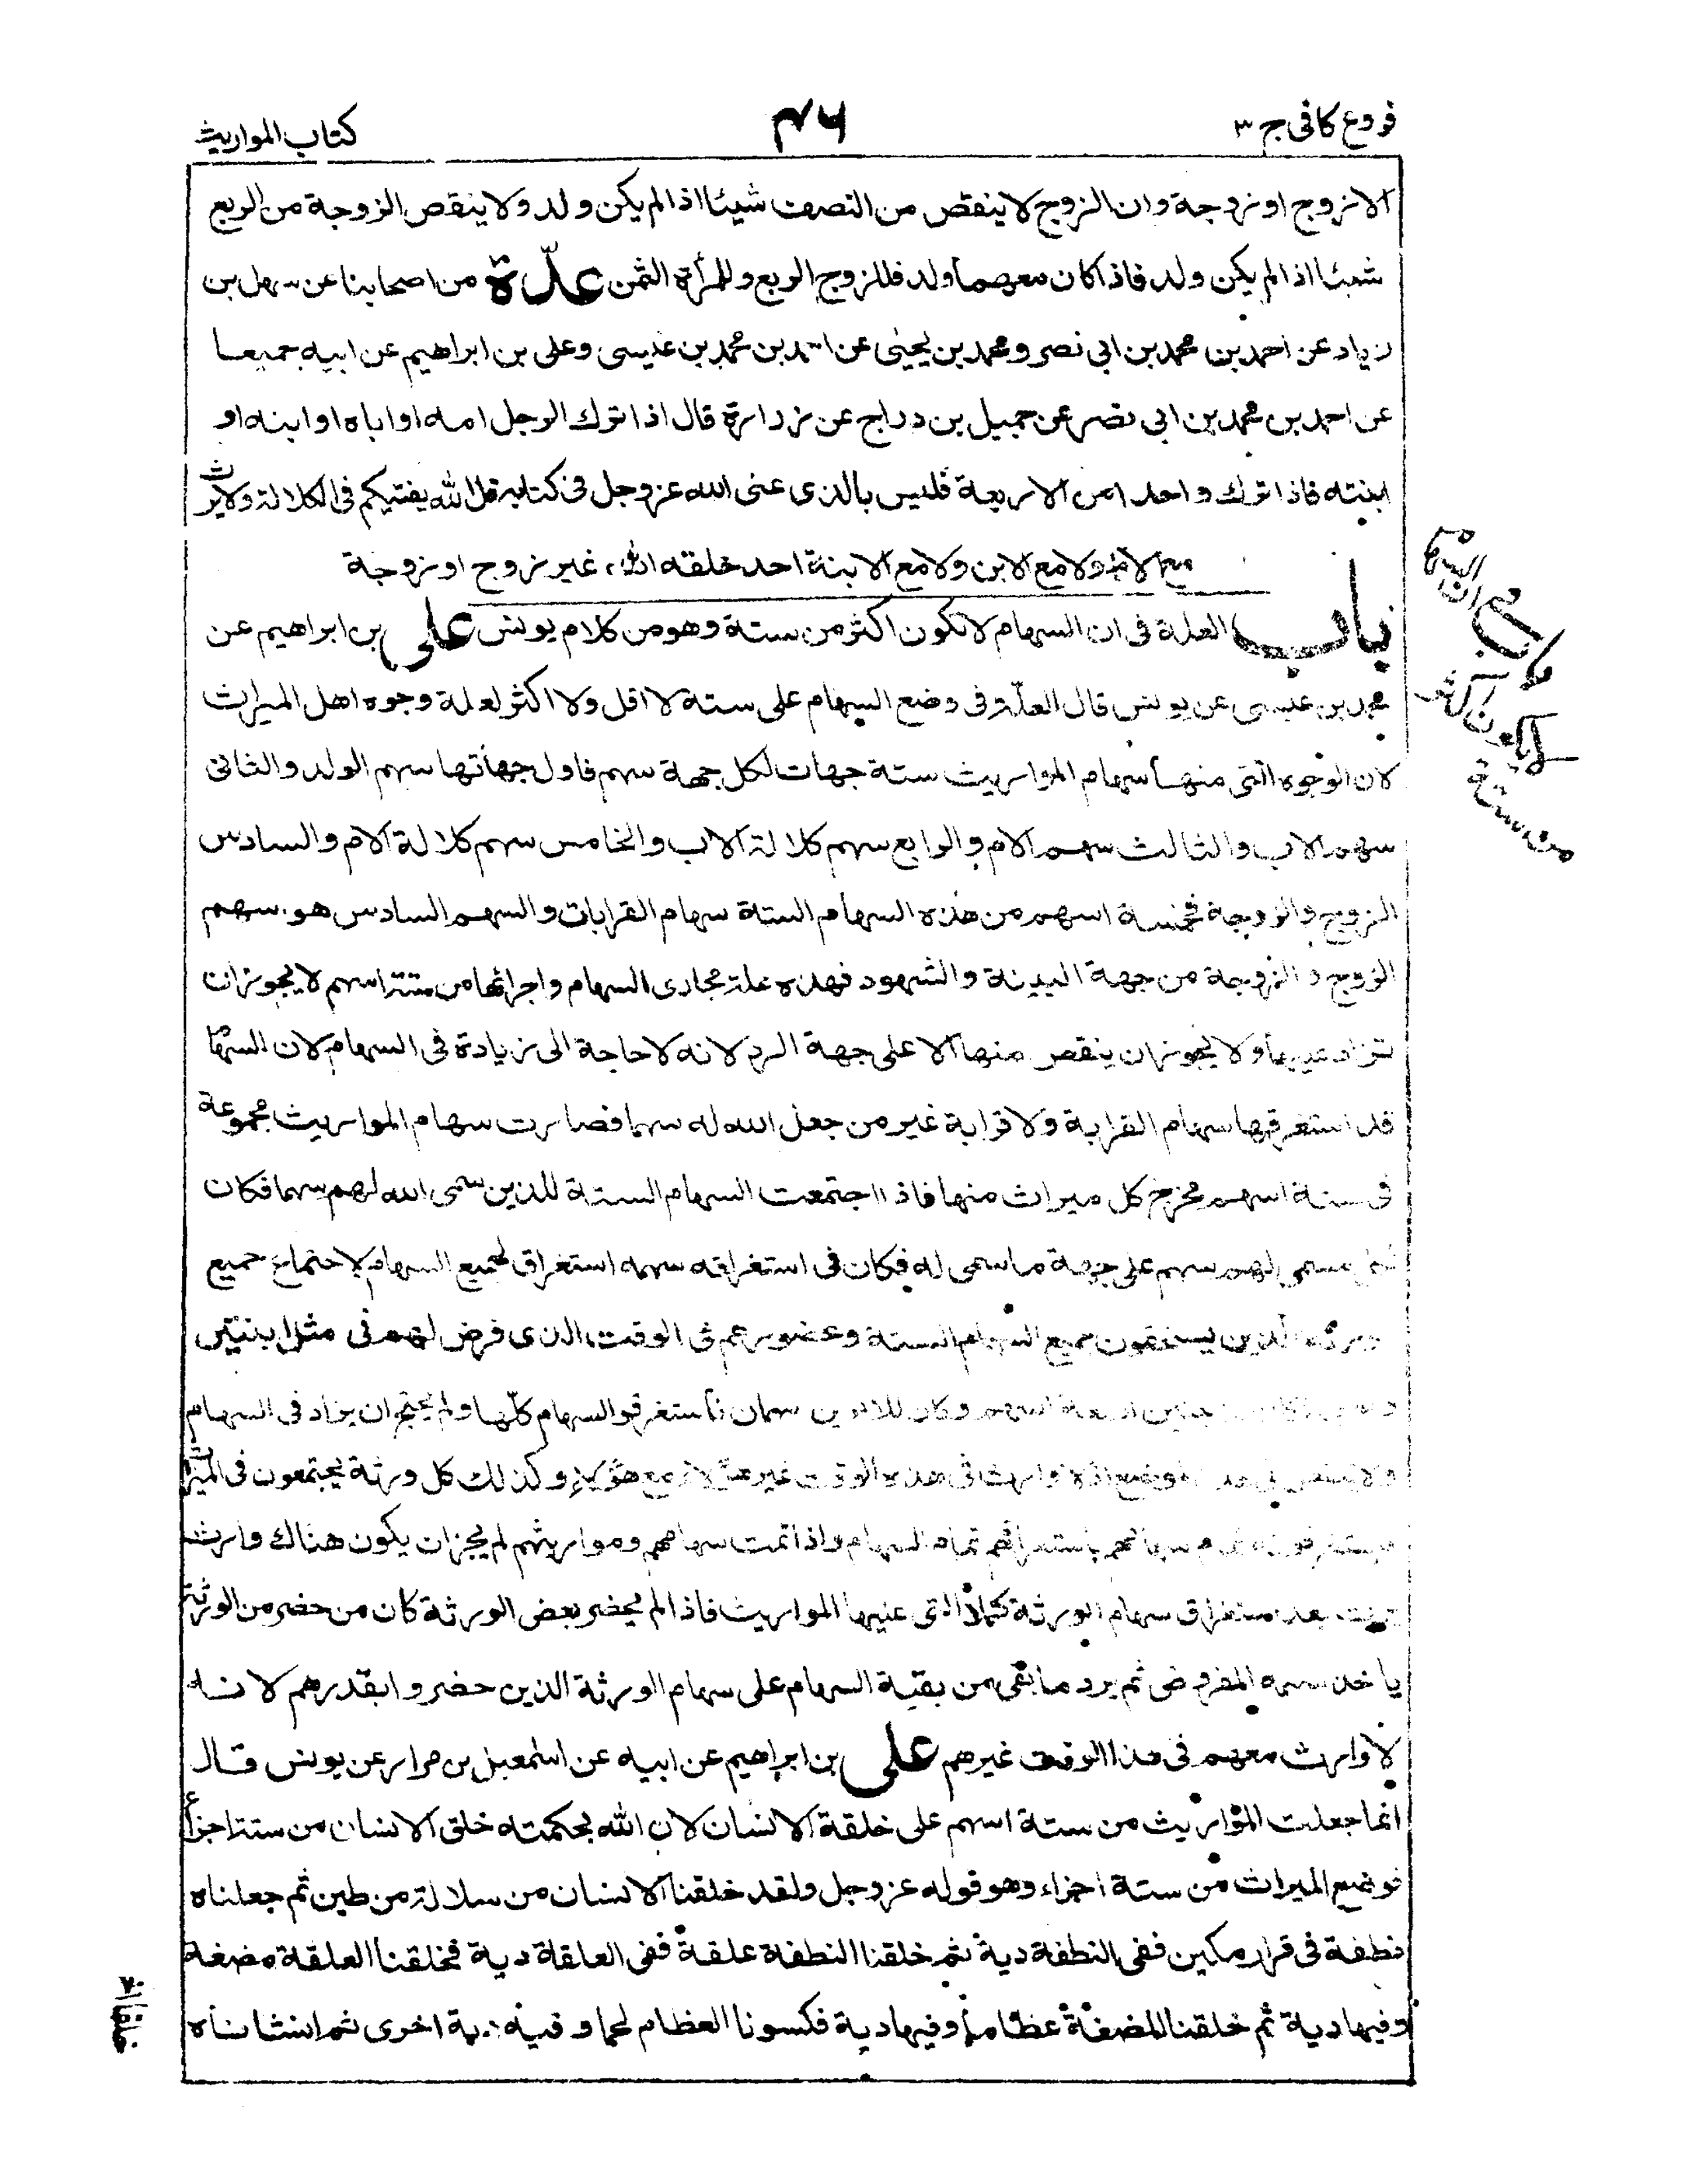 فروع كافى ج ٣
٤٦
كتاب المواريث
الا زوج او زوجة وان الزوج لا ينقص من النصف شيئا اذا لم يكن ولد ولا ينقص الزوجة من الربع
شيئا اذا لم يكن ولد فاذا كان معهما ولد فللزوج الربع وللمرأة الثمن عدّة من اصحابنا عن سهل بن
زياد عن احمد بن محمد بن ابى نصر ومحمد بن يحيى عن احمد بن محمد بن عيسى وعلى بن ابراهيم عن ابيه جميعا
عن احمد بن محمد بن ابى نصر عن جميل بن دراج عن زرارة قال اذا ترك الرجل امه او اباه او ابنه او
ابنته فاذا ترك واحدا من الاربعة فليس بالذى عنى الله عزوجل فى كتابه قل الله يفتيكم فى الكلالة ولا يرث
مع الام ولا مع الابن ولا مع الابنة احد خلقه الله غير زوج او زوجة
باب العلة فى ان السهام لا تكون اكثر من ستة وهو من كلام يونس على بن ابراهيم عن
محمد بن عيسى عن يونس قال العلّة فى وضع السهام على ستة لا اقل ولا اكثر لعلة وجوه اهل الميراث
لان الوجوه التى منها سهام المواريث ستة جهات لكل جهة سهم فاول جهاتها سهم الولد والثانى
سهم الاب والثالث سهم الام والرابع سهم كلالة الاب والخامس سهم كلالة الام والسادس
الزوج والزوجة فخمسة اسهم من هذه السهام الستة سهام القرابات والسهم السادس هو سهم
الزوج والزوجة من جهة البينة والشهود فهذه علة مجارى السهام واجرائها من ستة اسهم لا يجوز ان
تزاد عليها ولا يجوز ان ينقص منها الا على جهة الرد لانه لا حاجة الى زيادة فى السهام لان السهام
قد استغرقها سهام القرابة ولا قرابة غير من جعل الله له سهما فصارت سهام المواريث مجموعة
فى ستة اسهم مخرج كل ميراث منها فاذا اجتمعت السهام الستة للذين سمى الله لهم سهما فكان
لكل مسمى لهم سهم على جهة ما سمى له فكان فى استغراقه سهمه استغراق لجميع السهام لاجتماع جميع
الذين يستحقون جميع السهام الستة وحضورهم فى الوقت الذى فرض لهم فى مثل ابنتين
اربعة اسهم وكان للابوين سهمان فاستغرقوا السهام كلّها ولم يحتج ان يزاد فى السهام
ولا ينقص فى هذا الموضع اذ لا وارث فى هذه الوقت غير هؤلاء مع هؤلاء وكذلك كل ورثة يجتمعون فى الميراث
سهامهم باستغراقهم تمام السهام واذا تمت سهامهم ومواريثهم لم يجز ان يكون هناك وارث
يرث بعد استغراق سهام الورثة كملا التى عليها المواريث فاذا لم يحضر بعض الورثة كان من حضر من الورثة
ياخذ سهمه المفروض ثم يرد ما بقى من بقية السهام على سهام الورثة الذين حضروا بقدرهم لانه
لا وارث معهم فى هذا الوقت غيرهم على بن ابراهيم عن ابيه عن اسمعيل بن مرار عن يونس قال
انما جعلت المواريث من ستة اسهم على خلقة الانسان لان الله بحكمته خلق الانسان من ستة اجزاء
فوضع الميراث من ستة اجزاء وهو قوله عزوجل ولقد خلقنا الانسان من سلالة من طين ثم جعلناه
نطفة فى قرار مكين ففى النطفة دية ثم خلقنا النطفة علقة ففى العلقة دية فخلقنا العلقة مضغة
وفيها دية ثم خلقنا المضغة عظاما وفيها دية فكسونا العظام لحما وفيه دية اخرى ثم انشاناه
باب فى ان السهام
لا يكون اكثر
من ستة